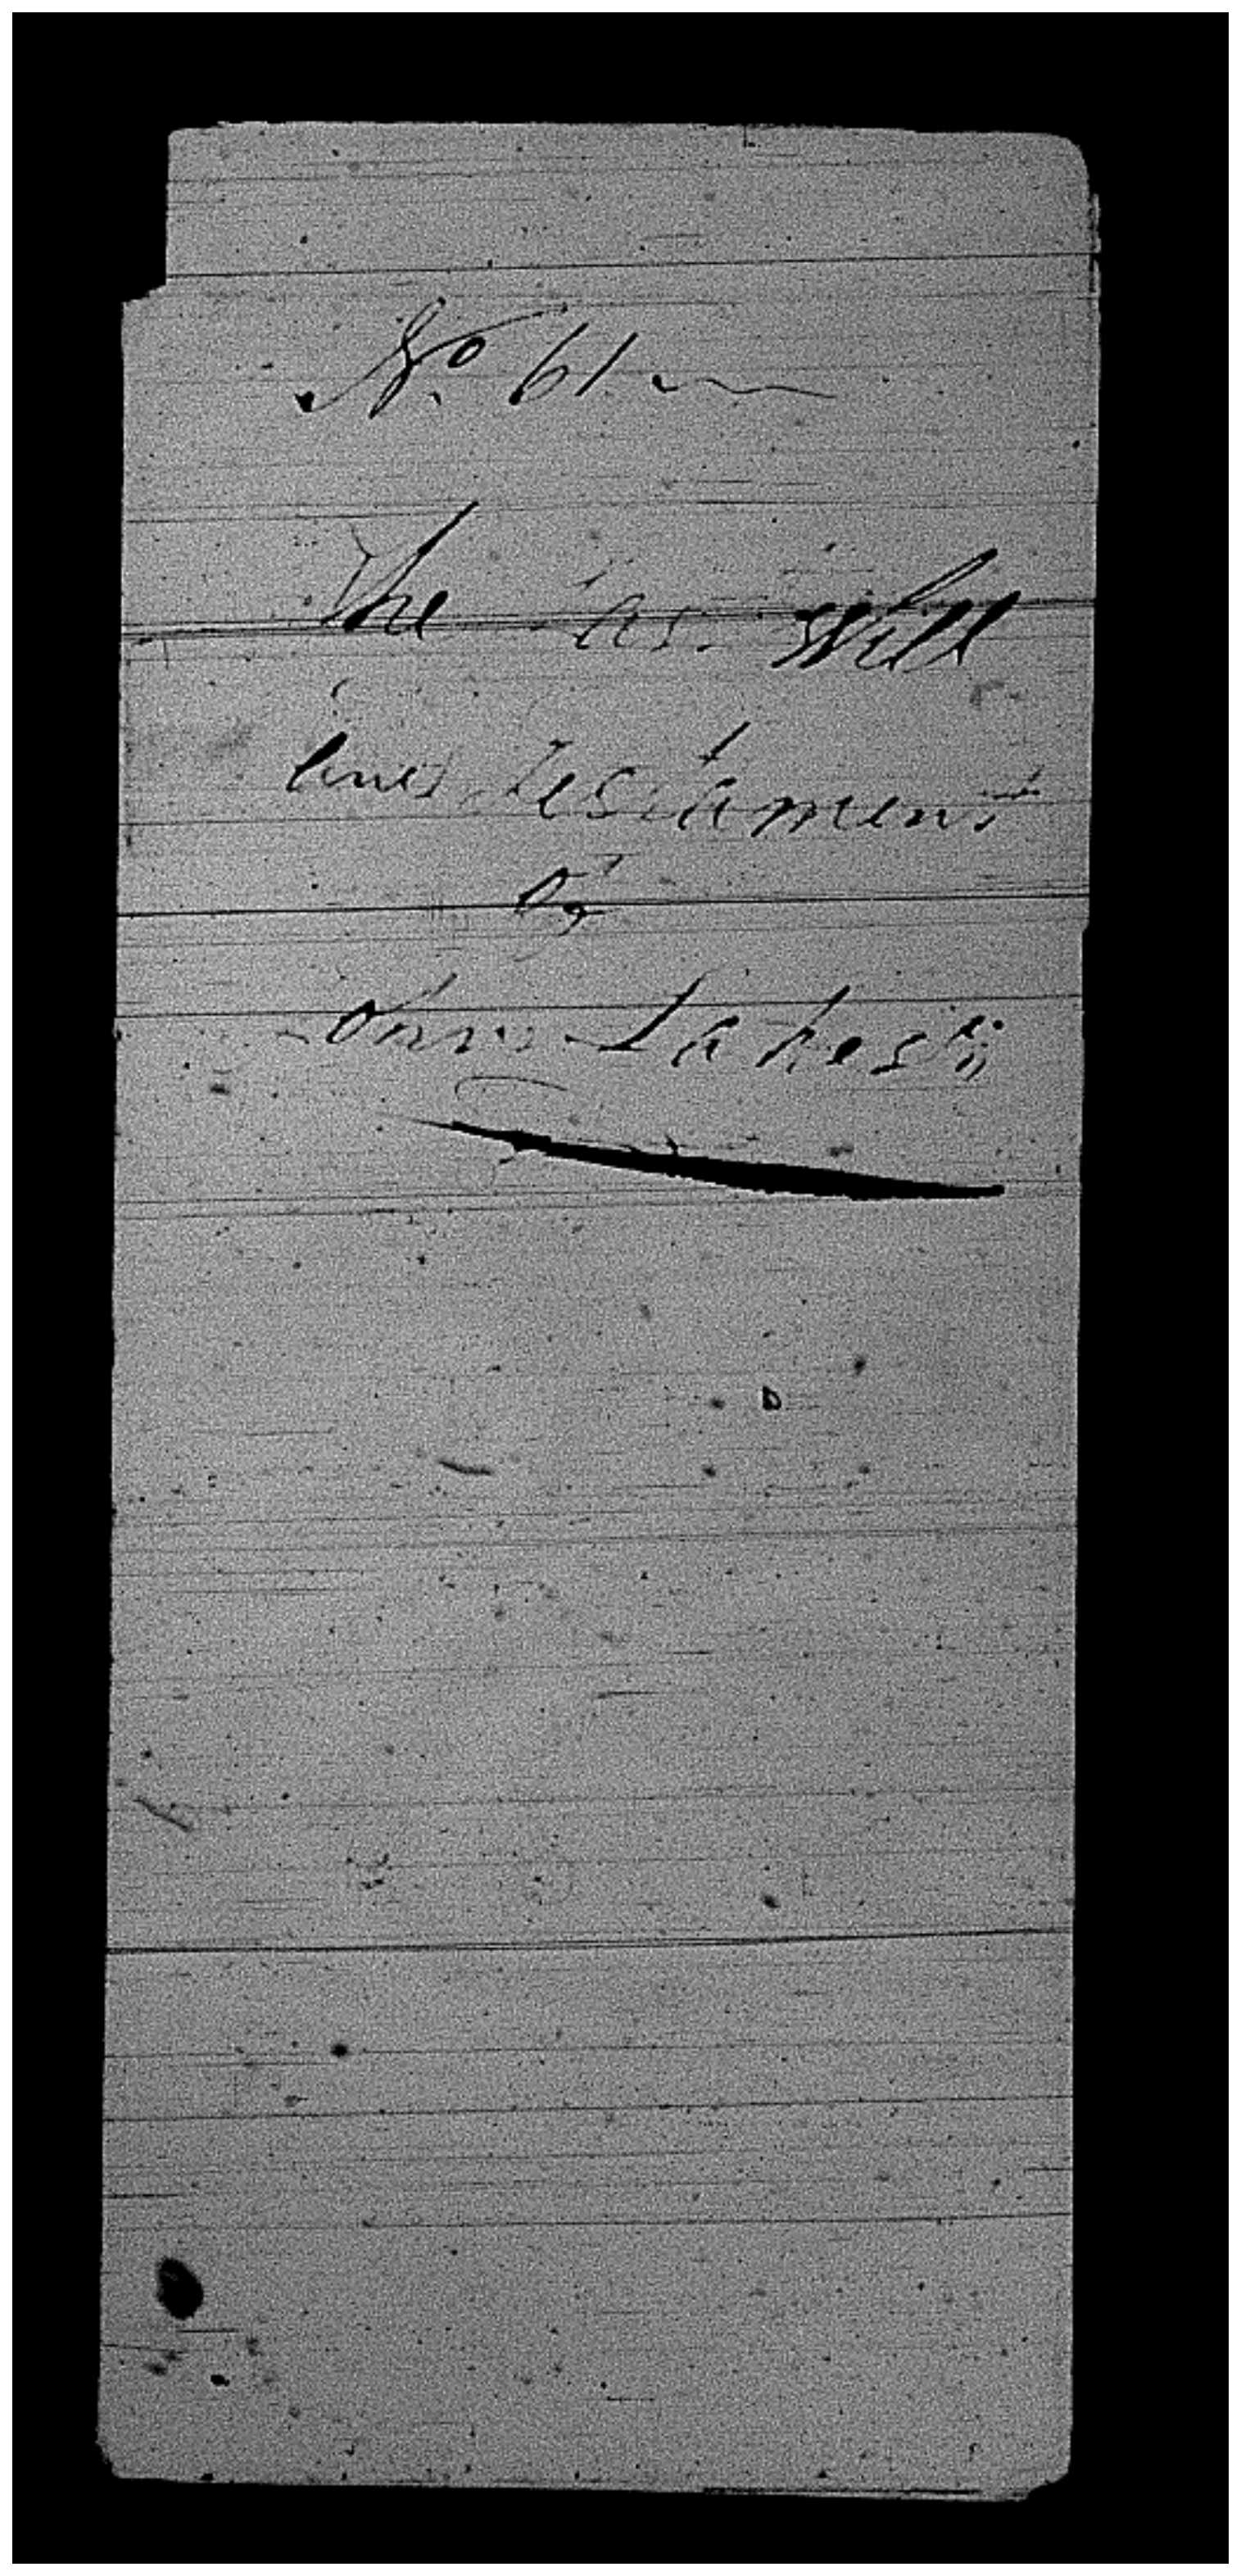 No. 61
The Las Will
and Testament
of
John Lakes